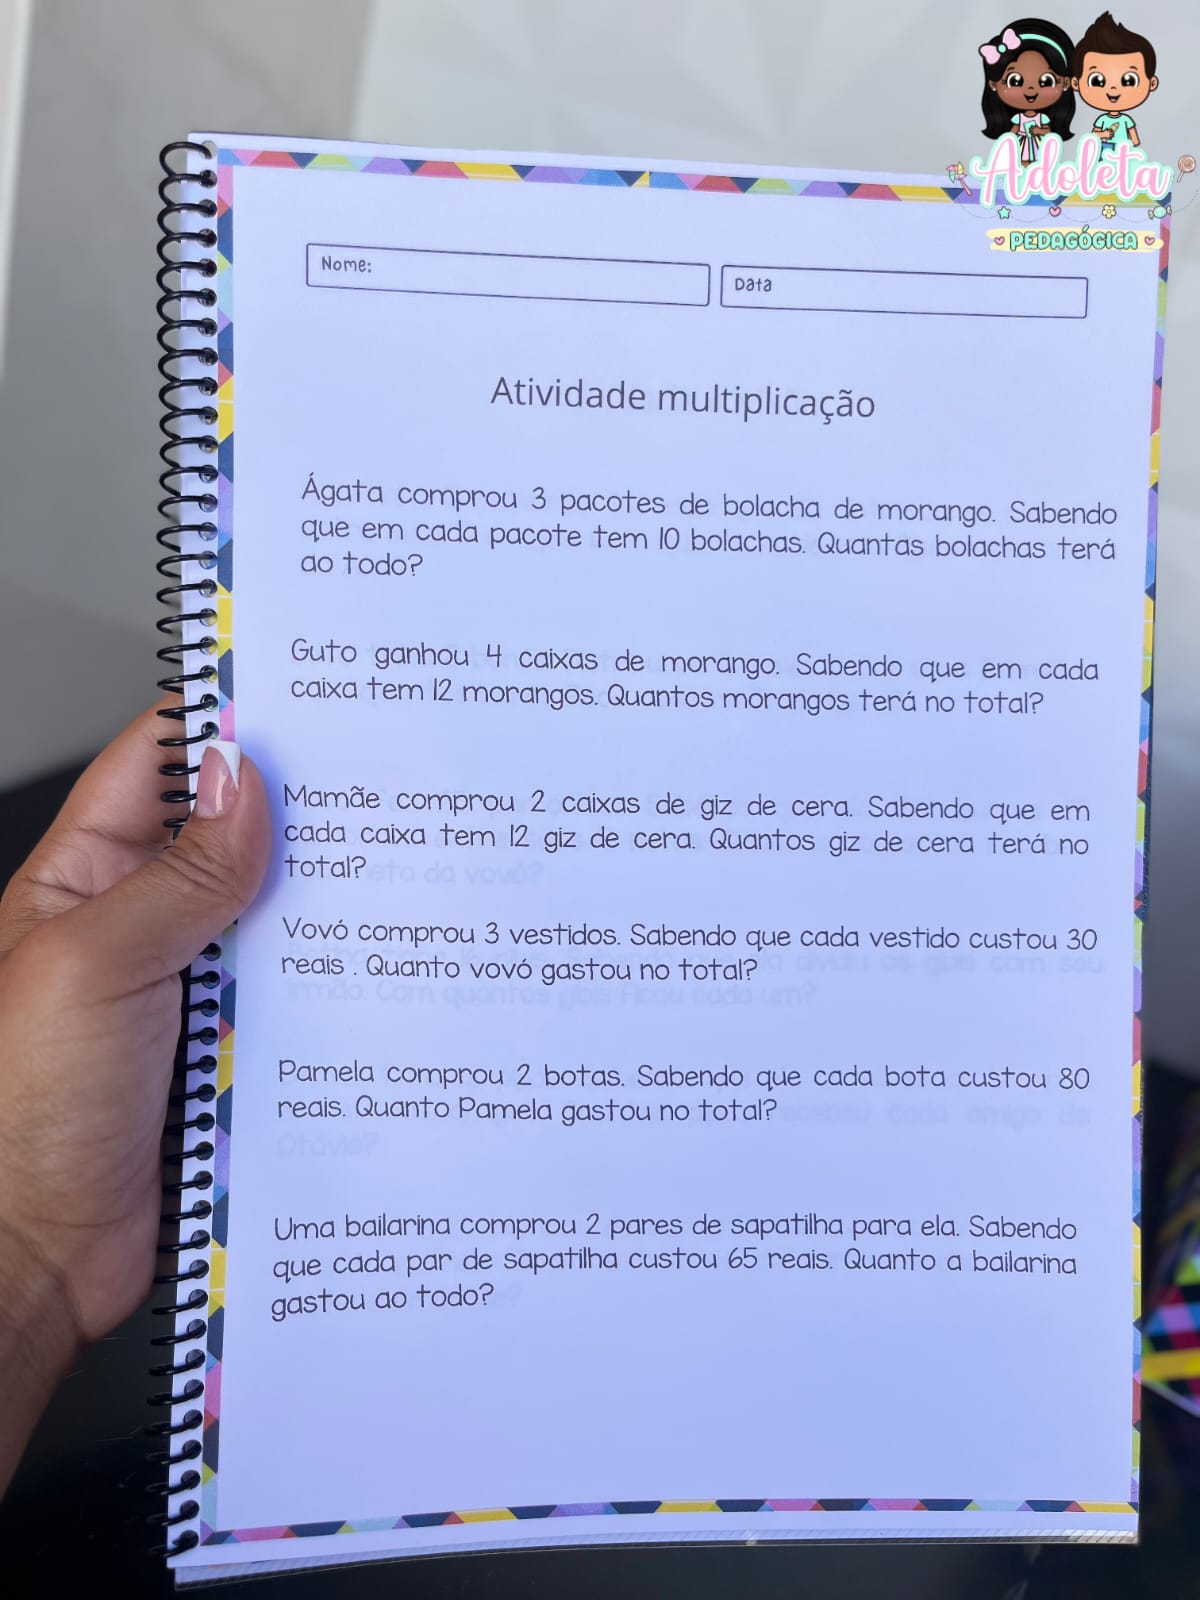 Adoleta
PEDAGÓGICA
Nome:
Data
Atividade multiplicação
Ágata comprou 3 pacotes de bolacha de morango. Sabendo
que em cada pacote tem 10 bolachas. Quantas bolachas terá
ao todo?
Guto ganhou 4 caixas de morango. Sabendo que em cada
caixa tem 12 morangos. Quantos morangos terá no total?
Mamãe comprou 2 caixas de giz de cera. Sabendo que em
cada caixa tem 12 giz de cera. Quantos giz de cera terá no
total?
Vovó comprou 3 vestidos. Sabendo que cada vestido custou 30
reais . Quanto vovó gastou no total?
Pamela comprou 2 botas. Sabendo que cada bota custou 80
reais. Quanto Pamela gastou no total?
Uma bailarina comprou 2 pares de sapatilha para ela. Sabendo
que cada par de sapatilha custou 65 reais. Quanto a bailarina
gastou ao todo?